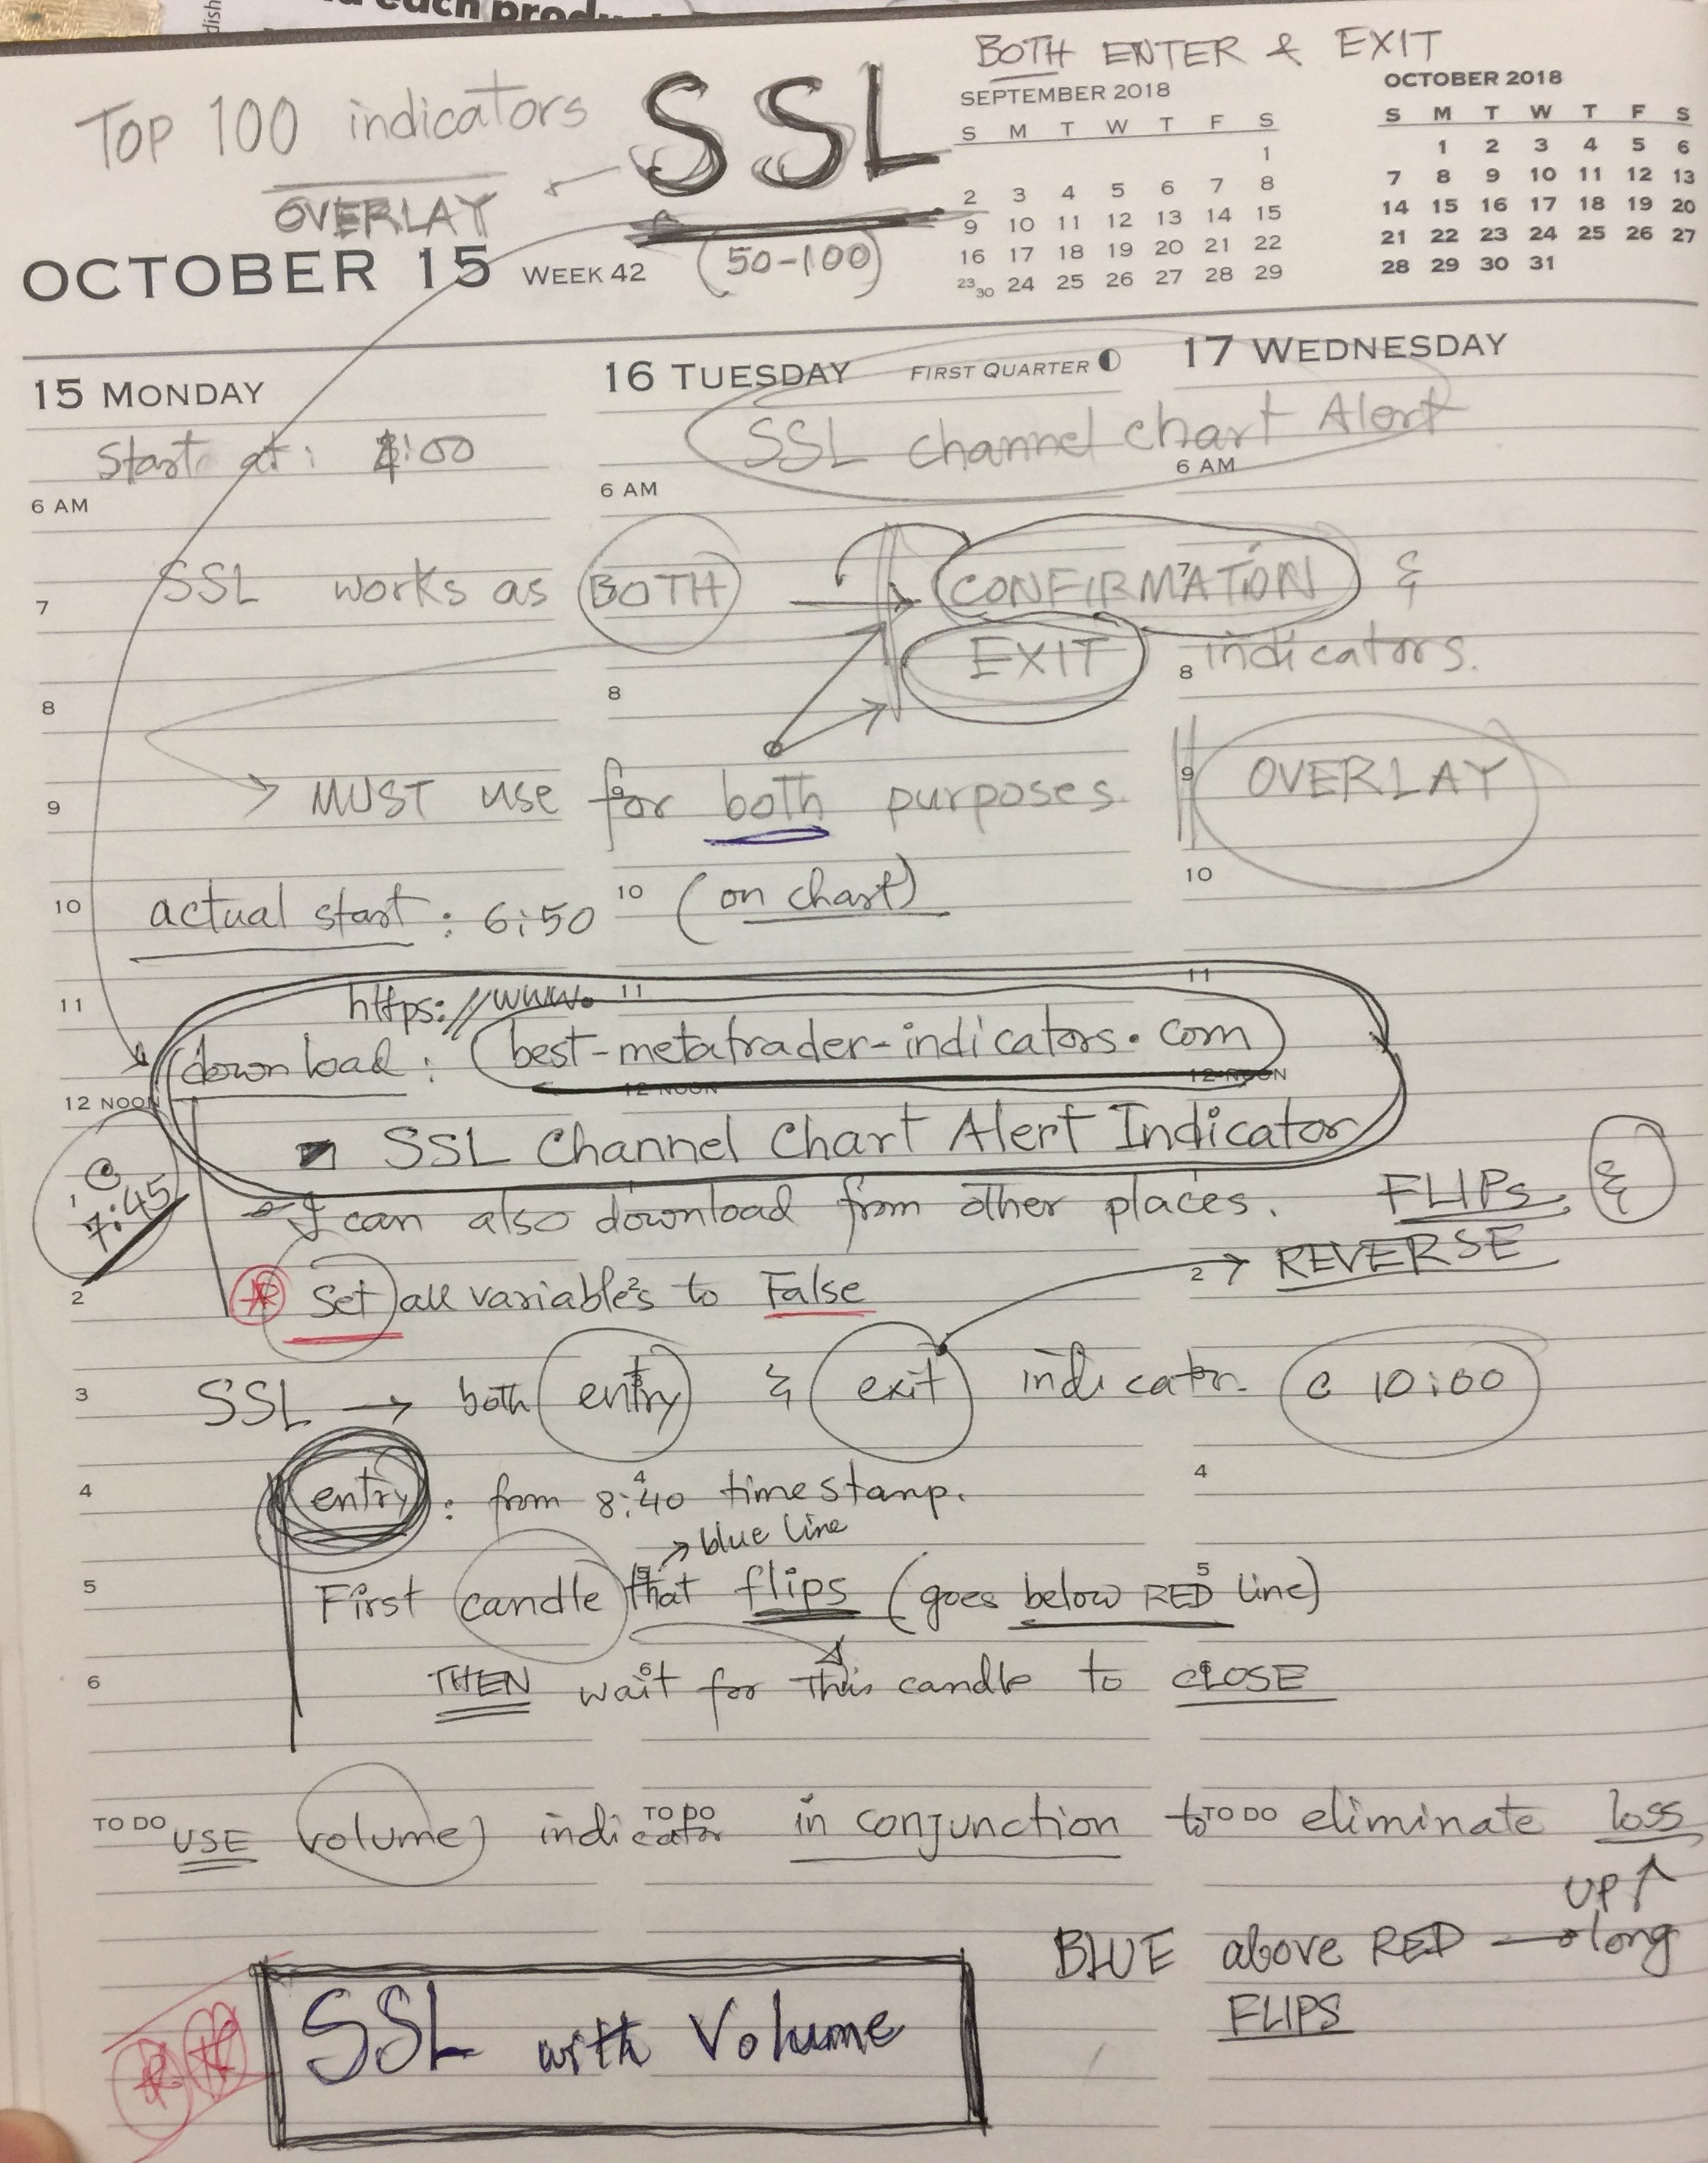 each produ
dish
BOTH ENTER & EXIT
TOP 100 indicators
SSL
OVERLAY
(50-100)
SEPTEMBER 2018
S M T W T F S
1
2 3 4 5 6 7 8
9 10 11 12 13 14 15
16 17 18 19 20 21 22
23 30 24 25 26 27 28 29
OCTOBER 2018
S M T W T F S
1 2 3 4 5 6
7 8 9 10 11 12 13
14 15 16 17 18 19 20
21 22 23 24 25 26 27
28 29 30 31
OCTOBER 15 WEEK 42
15 MONDAY
16 TUESDAY FIRST QUARTER
17 WEDNESDAY
Start at: :00
SSL channel chart Alert
6 AM 6 AM 6 AM
SSL works as BOTH → CONFIRMATION &
7 7
EXIT indicators.
8 8 8
→ MUST use for both purposes OVERLAY
9 9 9
actual start: 6:50 (on chart)
10 10 10
https://www.
11 11 11
download: best-metatrader-indicators.com
12 NOON 12 NOON 12 NOON
- SSL Channel Chart Alert Indicator
@ 7:45
1
I can also download from other places. FLIPs &
REVERSE
Set all variables to False
2 2 2
SSL → both entry & exit indicator. @ 10:00
3 3 3
entry: from 8:40 timestamp.
4 4 4
→ blue line
First candle that flips (goes below RED line)
5 5 5
THEN wait for this candle to CLOSE
6 6 6
TO DO TO DO TO DO
USE volume indicator in conjunction to eliminate loss
UP ↑
BLUE above RED → long
FLIPS
SSL with Volume